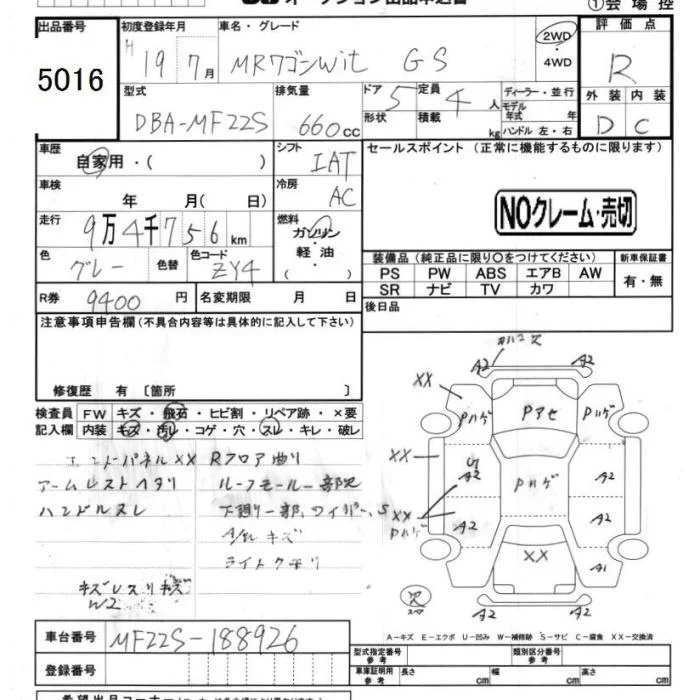 オークション出品申込書
①会場控
出品番号 初度登録年月 車名・グレード 評価点
5016 H 19 7月 MRワゴンWit GS 2WD・4WD R
型式 排気量 ドア 定員 ディーラー・並行 外装 内装
DBA-MF22S 660cc 5 4人 モデル年式 年 D C
形状 積載 kg ハンドル 左・右
車歴 シフト セールスポイント(正常に機能するものに限ります)
自家用・( ) IAT
車検 冷房
年 月( 日) AC NOクレーム・売切
走行 燃料
9万4千756km ガソリン・軽油・( )
色 色替 色コード 装備品(純正品に限り○をつけてください) 新車保証書
グレー ZY4 PS PW ABS エアB AW 有・無
SR ナビ TV カワ
R券 9400円 名変期限 月 日 後日品
注意事項申告欄(不具合内容等は具体的に記入して下さい)
修復歴 有〔箇所 〕
検査員 FW キズ・飛石・ヒビ割・リペア跡・×要
記入欄 内装 キズ・汚レ・コゲ・穴・スレ・キレ・破レ
エンドパネルXX Rフロア曲り
アームレストヘタリ ルーフモール一部欠
ハンドルスレ 下廻り一部、ワイパーS
A/W キズ
ライトクモリ
W2
カバー欠
A2 A2
XX Pハゲ Pアセ Pハゲ
XX U A2 Pハゲ A2
XX Pハゲ A2 A2
XX A1
欠 スペア A2 A2
A-キズ E-エクボ U-凹み W-補修跡 S-サビ C-腐食 XX-交換済
車台番号 MF22S-188926
型式指定番号 参考 類別区分番号 参考
登録番号
車庫証明用 参考 長さ cm 幅 cm 高さ cm
希望出品コーナー